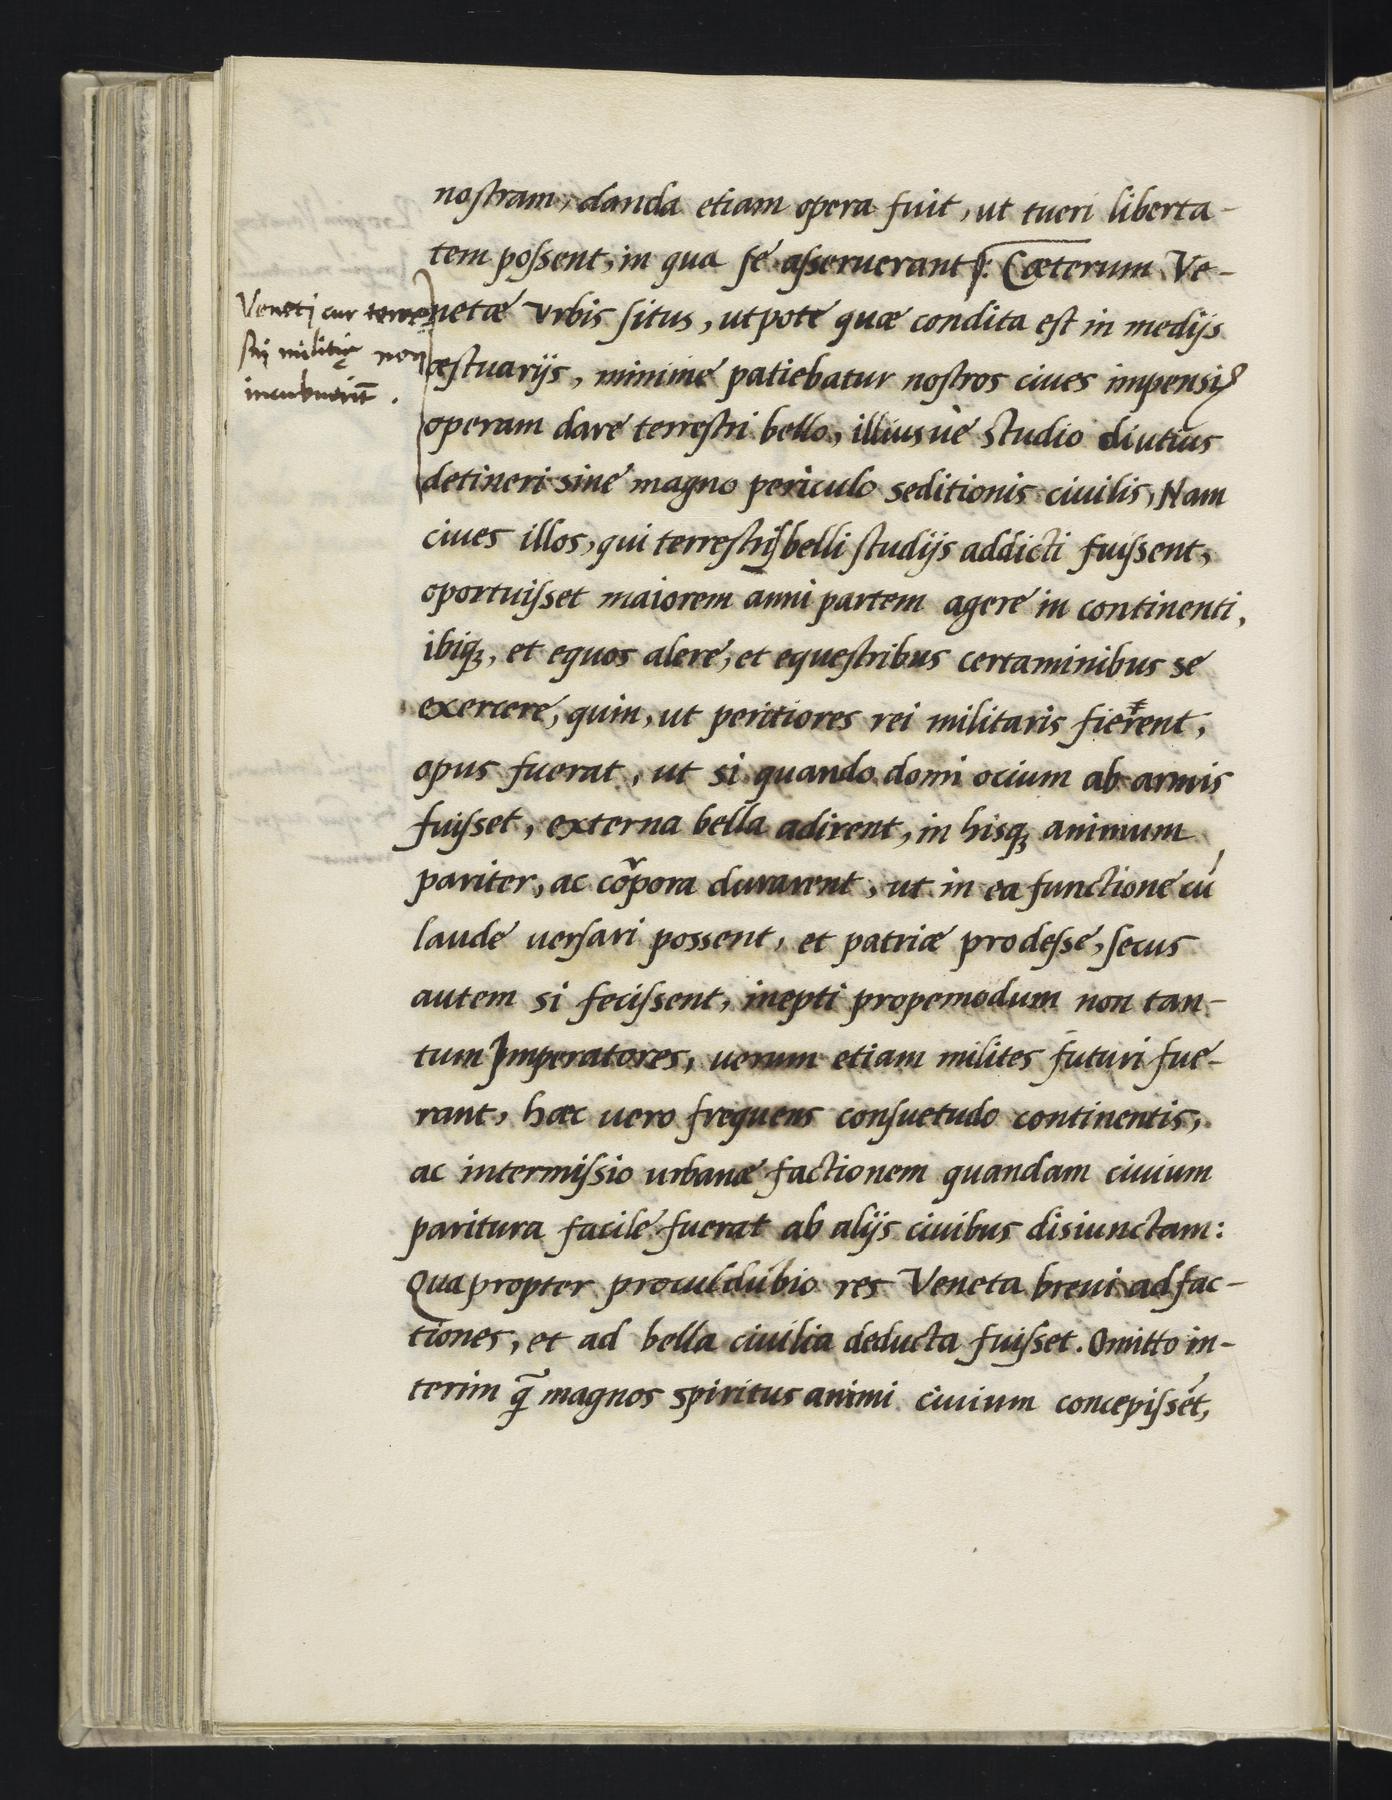 nostram, danda etiam opera fuit, ut tueri liberta-
tem possent, in qua se asseruerant. Cæterum Ve-
netæ Vrbis situs, utpote quæ condita est in medijs
æstuarijs, minime patiebatur nostros ciues impensiꝰ
operam dare terrestri bello, illiusuè studio diutius
detineri sine magno periculo seditionis ciuilis, Nam
ciues illos, qui terrestris belli studijs addicti fuissent,
oportuisset maiorem anni partem agere in continenti,
ibiq;, et equos alere, et equestribus certaminibus se
exercere, quin, ut peritiores rei militaris fierent,
opus fuerat, ut si quando domi ocium ab armis
fuisset, externa bella adirent, in hisq; animum
pariter, ac corpora durarent, ut in ea functione cū
laude uersari possent, et patriæ prodesse, secus
autem si fecissent, inepti propemodum non tan-
tum Imperatores, uerum etiam milites futuri fue-
rant, hæc uero frequens consuetudo continentis,
ac intermissio urbanæ factionem quandam ciuium
paritura facile fuerat ab alijs ciuibus disiunctam:
Quapropter proculdubio res Veneta breui ad fac-
tiones, et ad bella ciuilia deducta fuisset. Omitto in-
terim q̃ magnos spiritus animi ciuium concepissēt,
Veneti cur terre
stri militię non
incubuerīt.